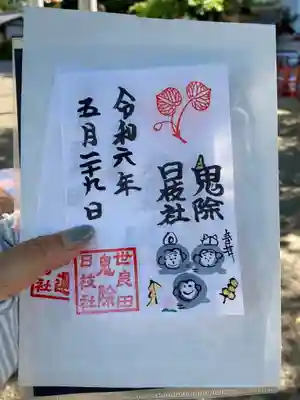 鬼除
日枝社
令和六年
五月二十九日
世良田
鬼除
日枝社